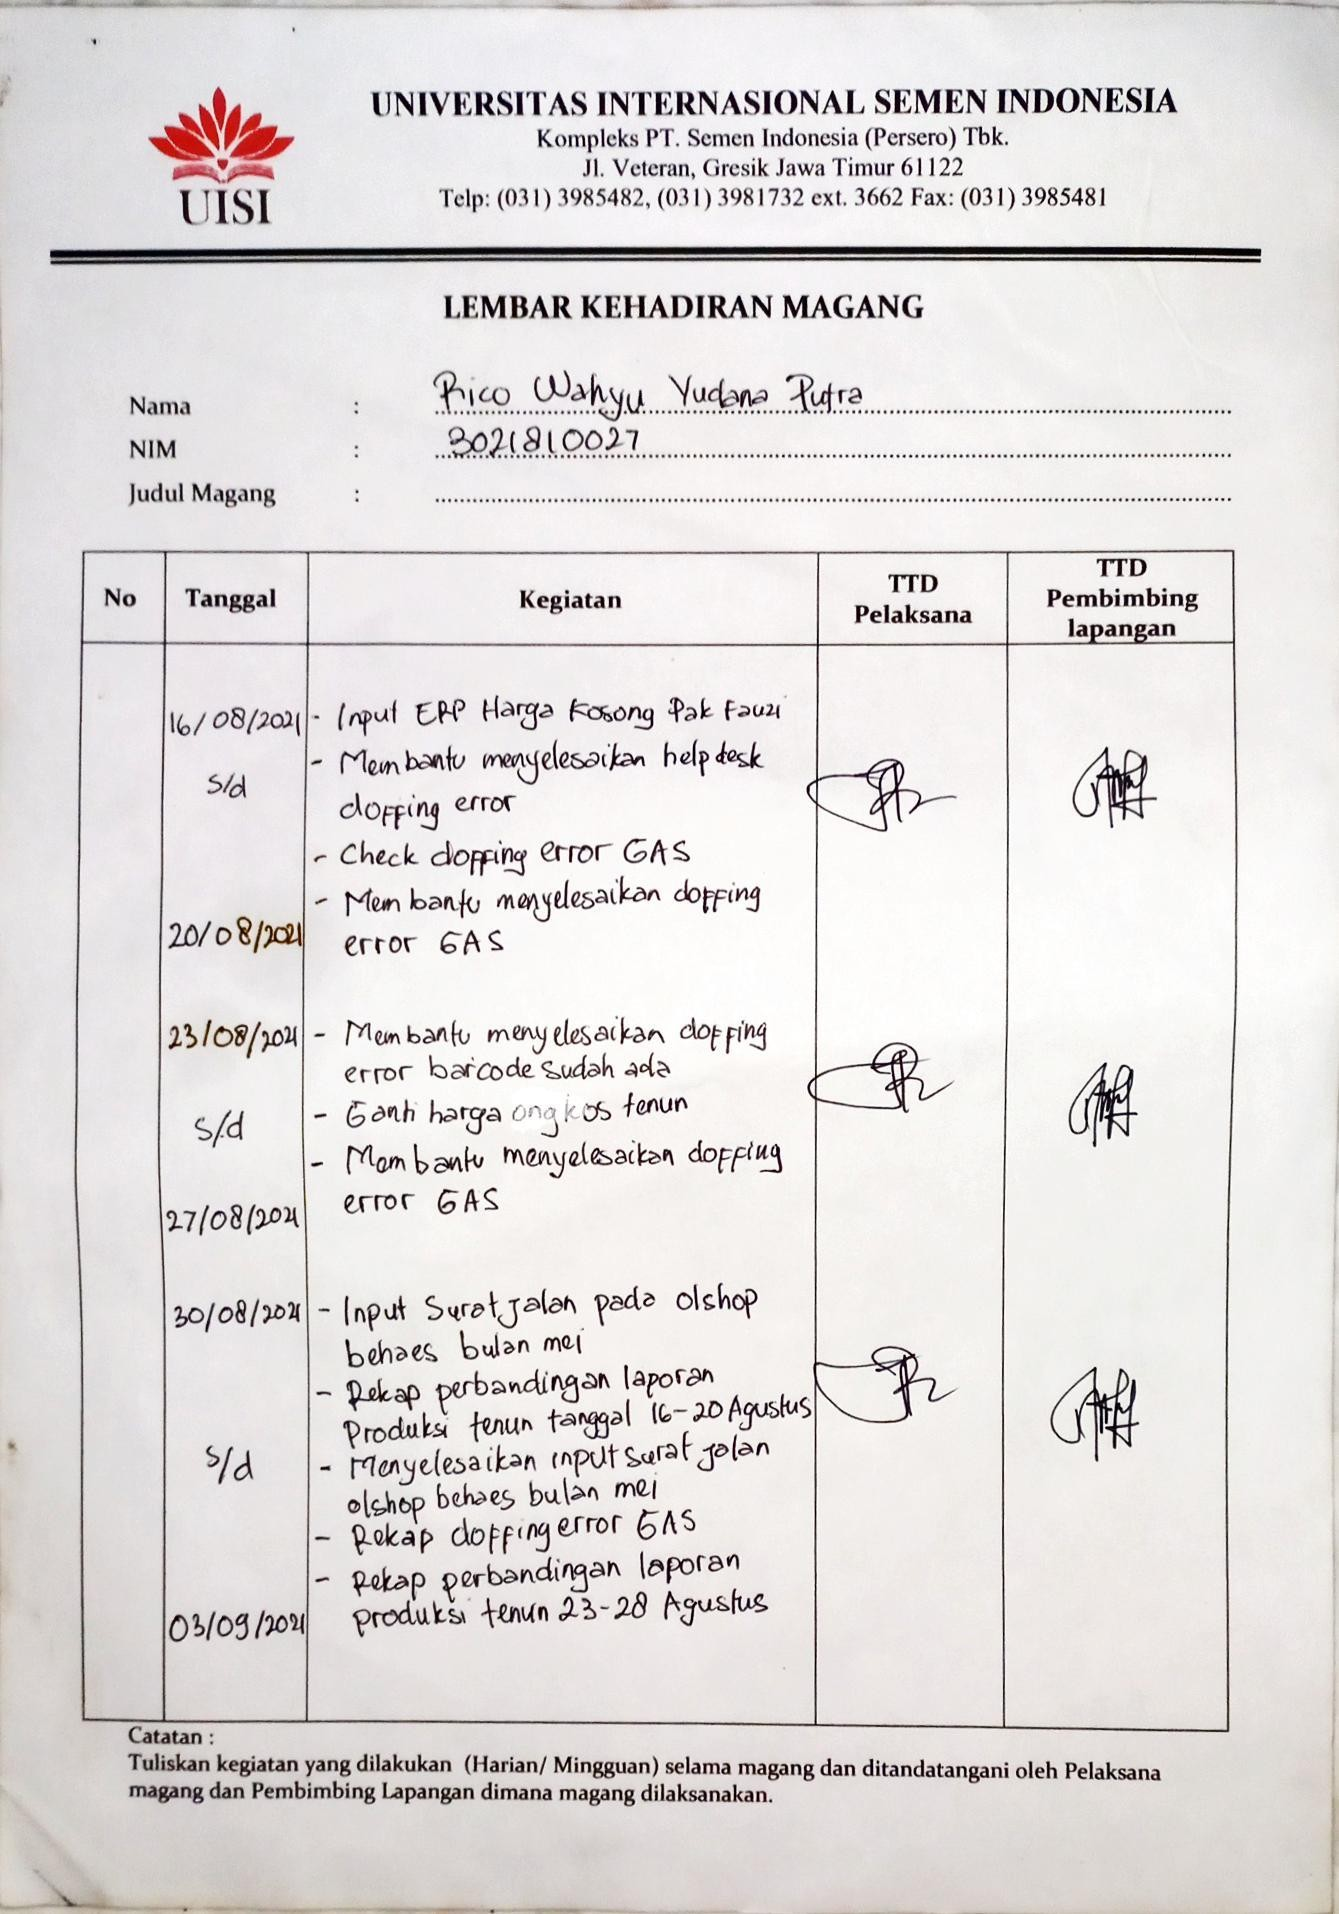 UNIVERSITAS INTERNASIONAL SEMEN INDONESIA
Kompleks PT. Semen Indonesia (Persero) Tbk.
Jl. Veteran, Gresik Jawa Timur 61122
Telp: (031) 3985482, (031) 3981732 ext. 3662 Fax: (031) 3985481
UISI
LEMBAR KEHADIRAN MAGANG
Nama : Rico Wahyu Yudana Putra
NIM : 3021810027
Judul Magang :
No Tanggal Kegiatan TTD Pelaksana TTD Pembimbing lapangan
16/08/2021 - Input ERP Harga Kosong Pak Fauzi
- Membantu menyelesaikan helpdesk
s/d
doffing error
- Check doffing error GAS
- Membantu menyelesaikan doffing
20/08/2021 error GAS
23/08/2021 - Membantu menyelesaikan doffing
error barcode sudah ada
- Ganti harga ongkos tenun
s/d
- Membantu menyelesaikan doffing
error GAS
27/08/2021
30/08/2021 - Input Surat jalan pada olshop
behaes bulan mei
- Rekap perbandingan laporan
Produksi tenun tanggal 16-20 Agustus
s/d - Menyelesaikan input surat jalan
olshop behaes bulan mei
- Rekap doffing error GAS
- Rekap perbandingan laporan
03/09/2021 produksi tenun 23-28 Agustus
Catatan :
Tuliskan kegiatan yang dilakukan (Harian/ Mingguan) selama magang dan ditandatangani oleh Pelaksana
magang dan Pembimbing Lapangan dimana magang dilaksanakan.